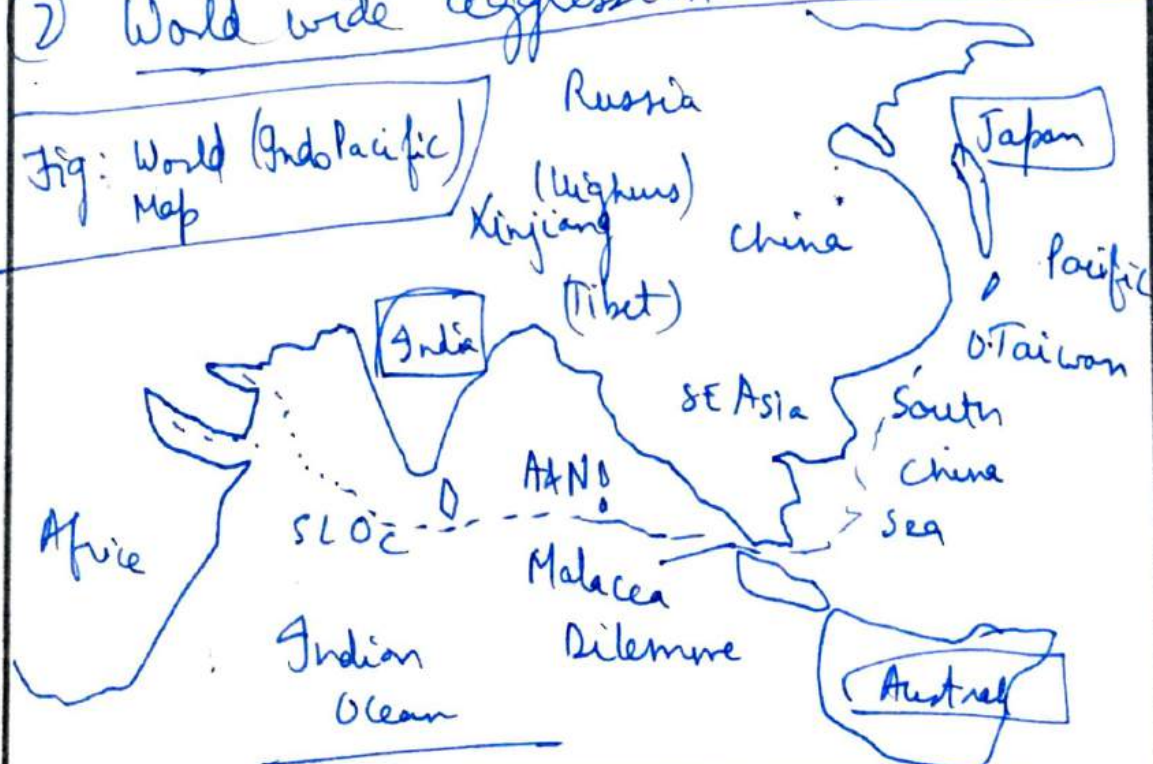 2) World wide aggression
Fig: World (IndoPacific)
Map
Russia
Japan
(Uighurs)
Xinjiang
China
Pacific
(Tibet)
India
O.Taiwan
SE Asia
South
China
Sea
A&N
Africe
SLOC
Malacca
Dilemme
Indian
Ocean
Austral